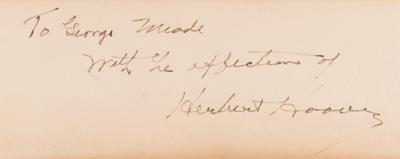 To George Meade
With the affections of
Herbert Hoover